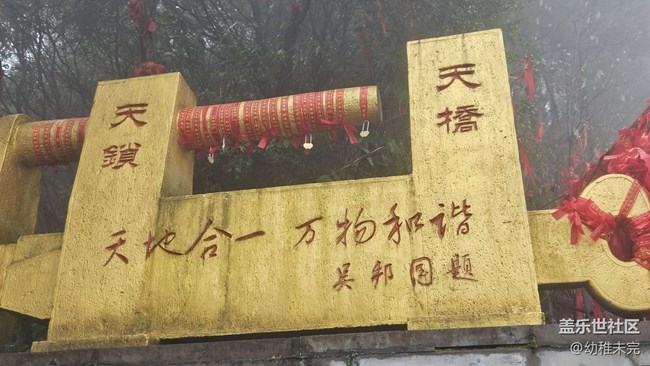 天鎖
天橋
天地合一 万物和谐
吴邦国题
盖乐世社区
@幼稚未完